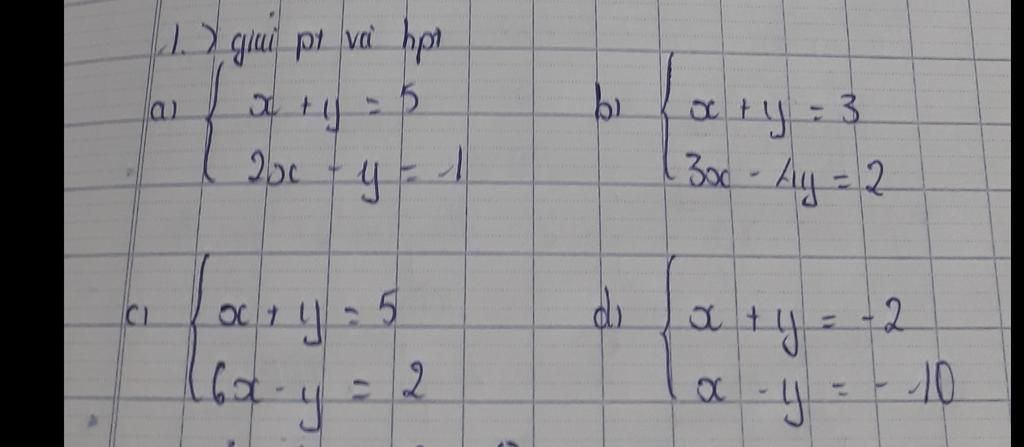 1.) giải pt và hpt
a) { x + y = 5    b) { x + y = 3
2x - y = -1    3x - 4y = 2
c) { x + y = 5    d) { x + y = -2
6x - y = 2    x - y = -10